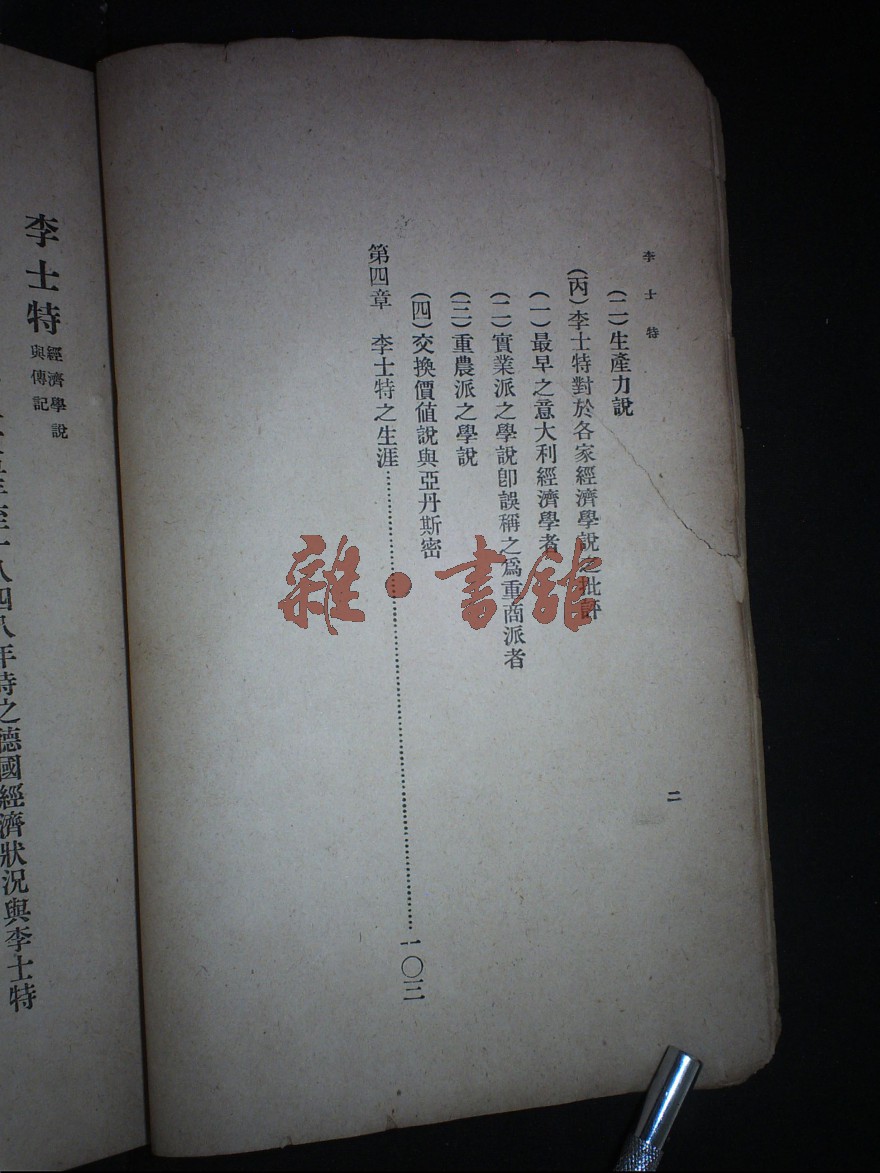 李士特
(二)生產力說
(丙)李士特對於各家經濟學說之批評
(一)最早之意大利經濟學者
(二)實業派之學說卽誤稱之爲重商派者
(三)重農派之學說
(四)交換價值說與亞丹斯密
第四章 李士特之生涯……一〇三
二
李士特經濟學說與傳記
年至一八四八年時之德國經濟狀況與李士特
雜·書館